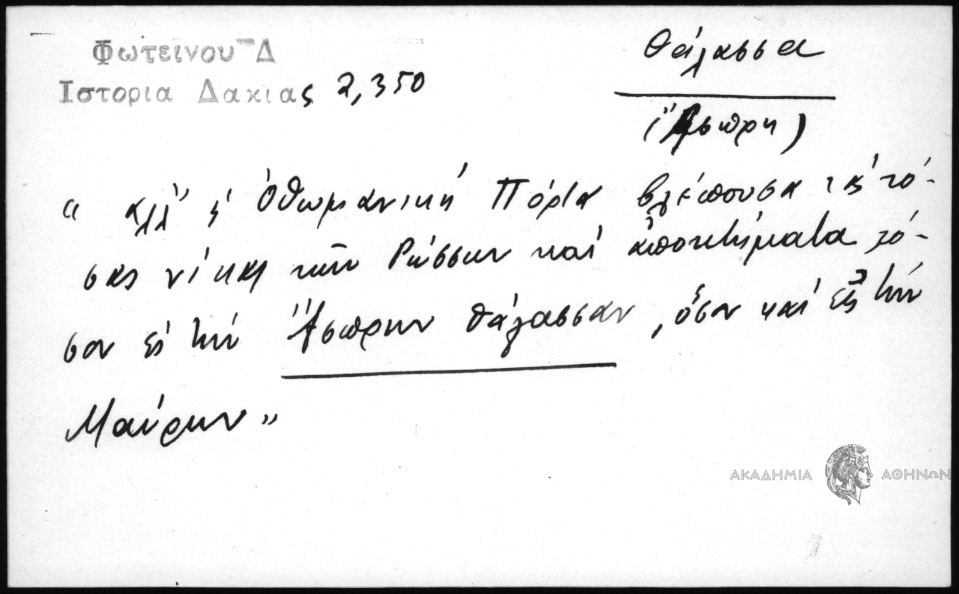 Φωτεινου Δ
Ιστορια Δακιας 2,350
θάλασσα
(Ἄσπρη)
“ ἀλλ' ἡ Ὀθωμανική Πόρτα βλέπουσα τάς τό-
σας νίκας τῶν Ρώσσων καί ἀποκτήματα τό-
σον εἰς τήν Ἄσπρην θάλασσαν, ὅσον καί εἰς τήν
Μαύρην „
ΑΚΑΔΗΜΙΑ ΑΘΗΝΩΝ